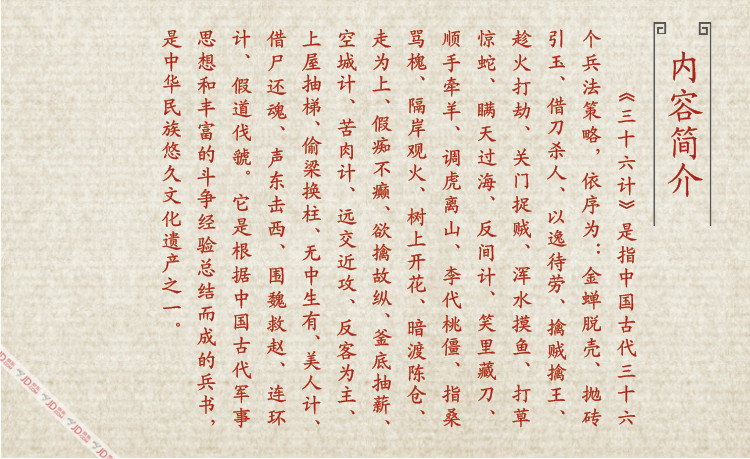 内容简介
《三十六计》是指中国古代三十六
个兵法策略，依序为：金蝉脱壳、抛砖
引玉、借刀杀人、以逸待劳、擒贼擒王、
趁火打劫、关门捉贼、浑水摸鱼、打草
惊蛇、瞒天过海、反间计、笑里藏刀、
顺手牵羊、调虎离山、李代桃僵、指桑
骂槐、隔岸观火、树上开花、暗渡陈仓、
走为上、假痴不癫、欲擒故纵、釜底抽薪、
空城计、苦肉计、远交近攻、反客为主、
上屋抽梯、偷梁换柱、无中生有、美人计、
借尸还魂、声东击西、围魏救赵、连环
计、假道伐虢。它是根据中国古代军事
思想和丰富的斗争经验总结而成的兵书，
是中华民族悠久文化遗产之一。